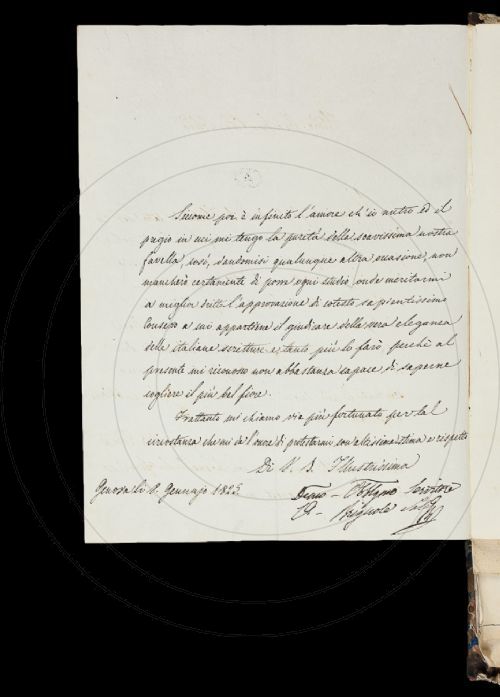 Siccome poi è infinito l'amore ch'io nutro ed il
pregio in cui mi tengo la purità della soavissima nostra
favella, così, dandomisi qualunque altra occasione, non
mancherò certamente di porre ogni studio, onde meritarmi
a miglior dritto l'approvazione di cotesto sapientissimo
Consesso a cui appartiene il giudicare della vera eleganza
delle italiane scritture e, tanto più lo farò, perchè al
presente mi riconosco non abbastanza capace di saperne
cogliere il più bel fiore.
Frattanto mi chiamo via più fortunato per tal
circostanza che mi dà l'onore di protestarmi con altissima stima e rispetto
Di V. S. Illustrissima
Genova li 8. Gennajo 1825
Devmo - Obblgmo Servitore
Brignole Sale